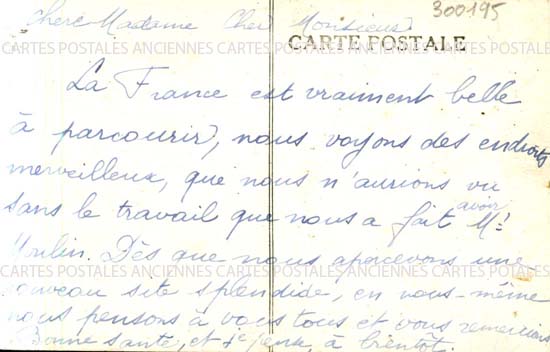 Chère Madame Cher Monsieur
300195
CARTES POSTALES ANCIENNES CARTES POSTALES ANCIENNES CARTES POSTALES ANCIENNES
CARTE POSTALE
La France est vraiment belle
à parcourir, nous voyons des endroits
merveilleux, que nous n'aurions vu
sans le travail que nous a fait avoir Mr
Moulin. Dès que nous apercevons une
CARTES POSTALES ANCIENNES CARTES POSTALES ANCIENNES CARTES POSTALES ANCIENNES
nouveau site splendide, en nous-même
nous pensons à vous tous et vous remercions
Bonne santé, et je pense, à bientôt.